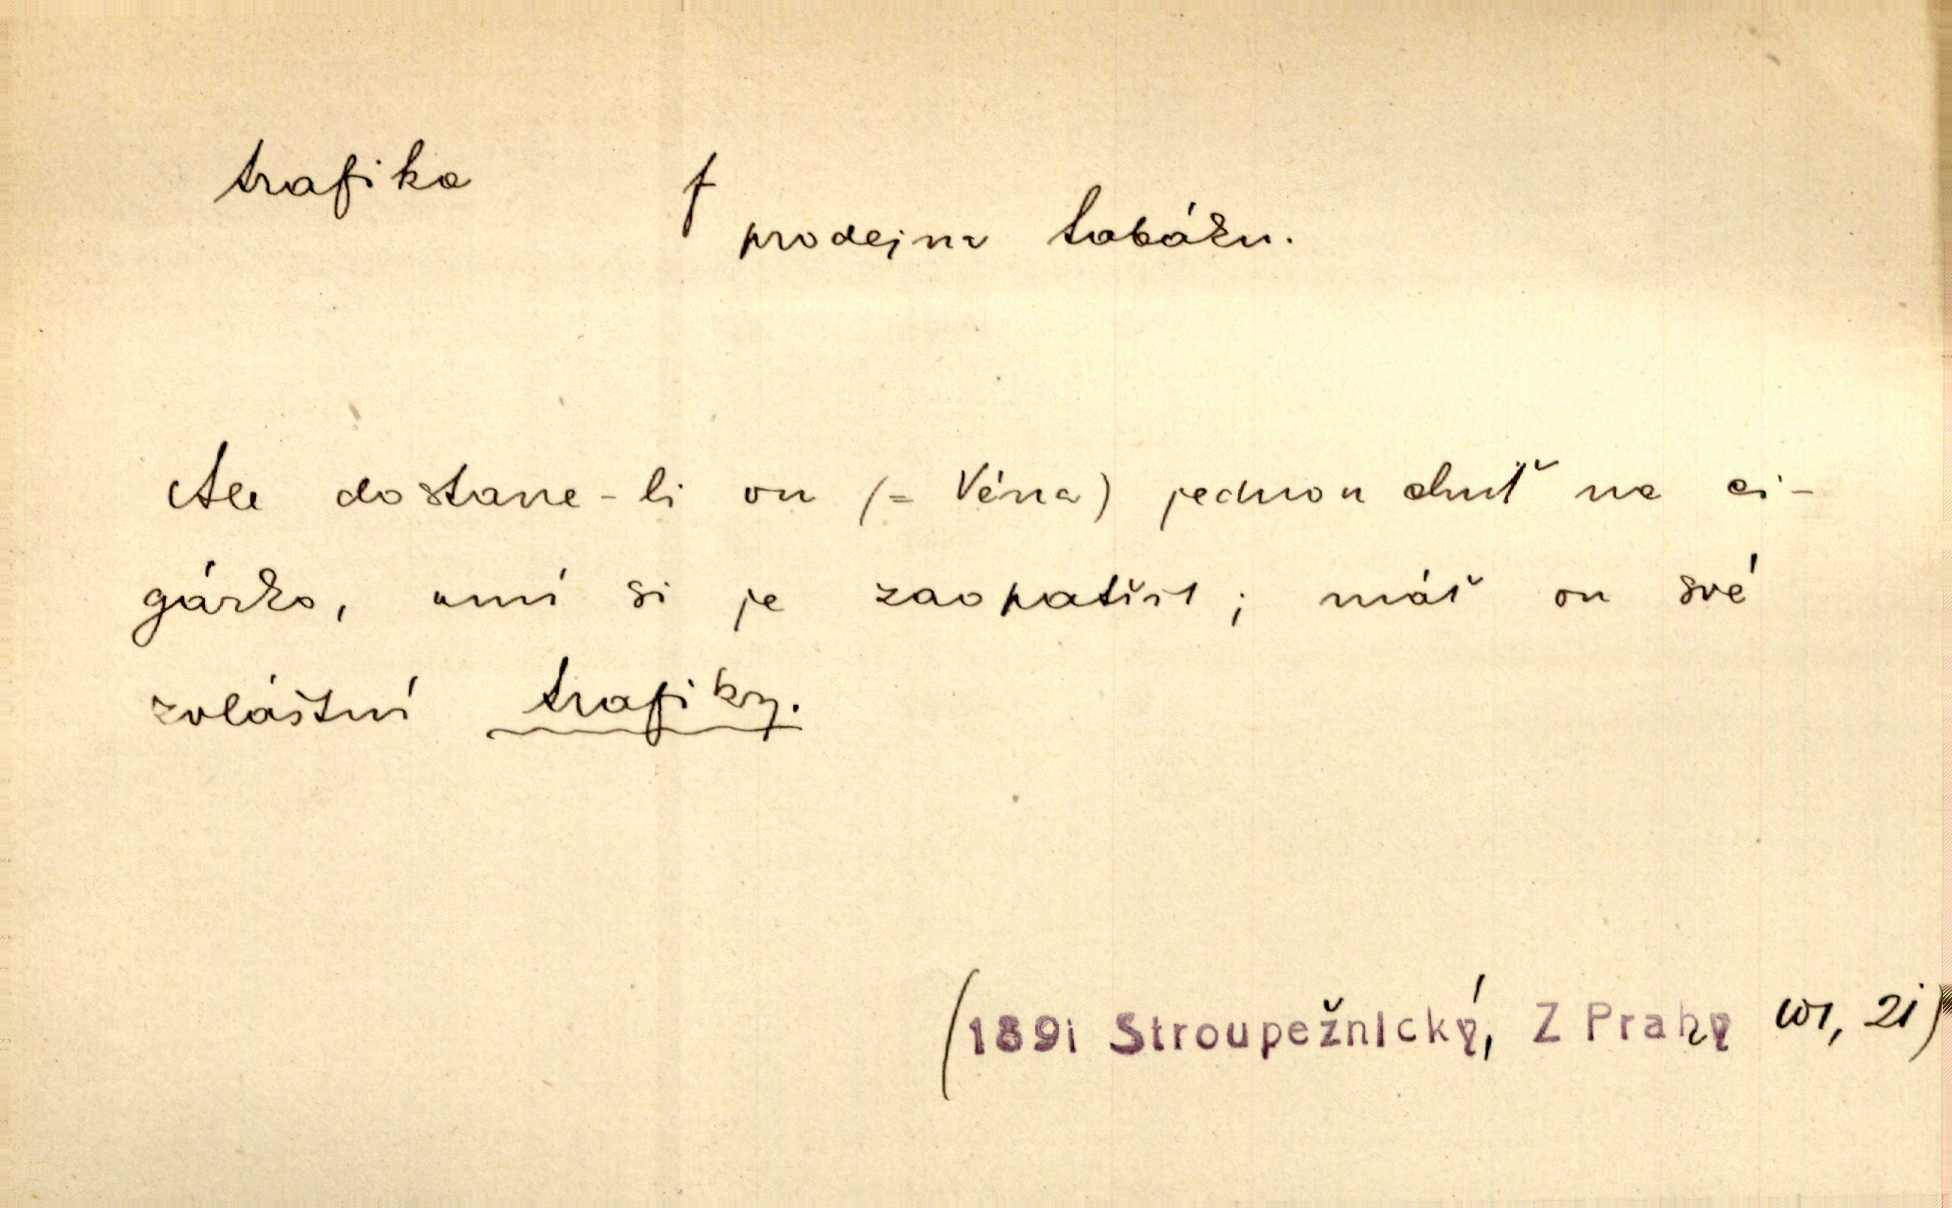 trafika f
prodejna tabáku.
Ale dostane-li on (= Véna) jednou chuť na ci-
gárko, umí si je zaopatřit; máť on své
zvláštní trafiky.
(1891 Stroupežnický, Z Prahy 101, 21)